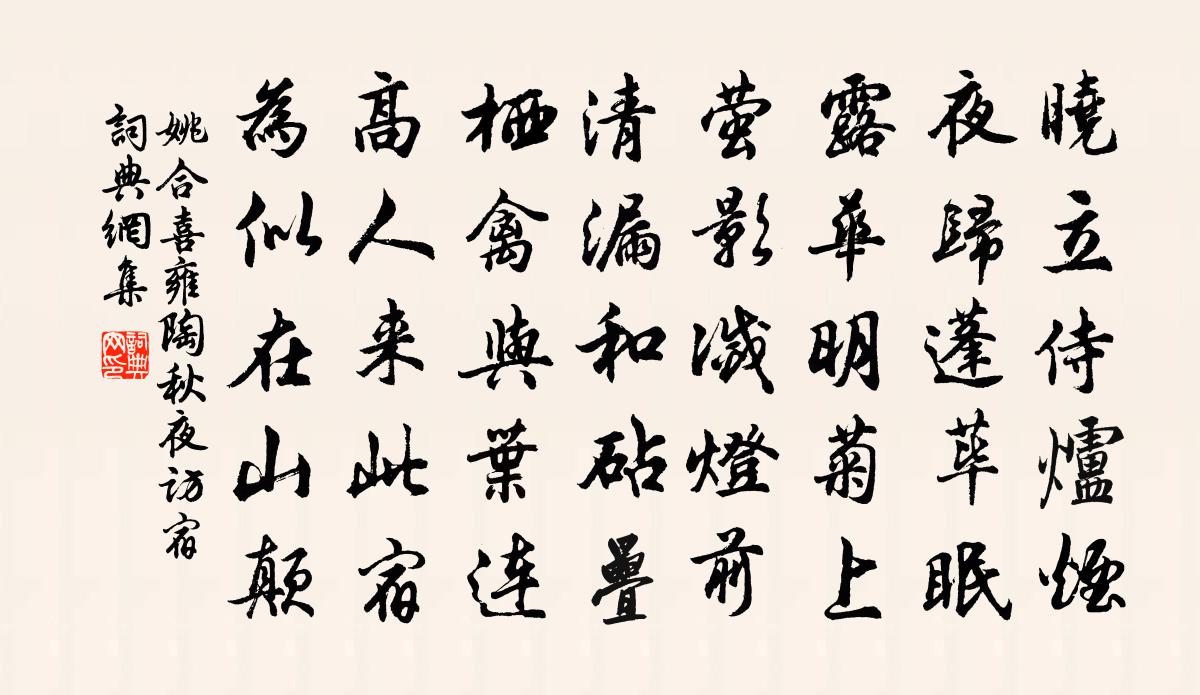 曉立侍爐煙
夜歸蓬蓽眠
露華明菊上
萤影滅燈前
清漏和砧疊
栖禽與葉連
高人来此宿
為似在山颠
姚合喜雍陶秋夜訪宿
詞典網集
詞典网印